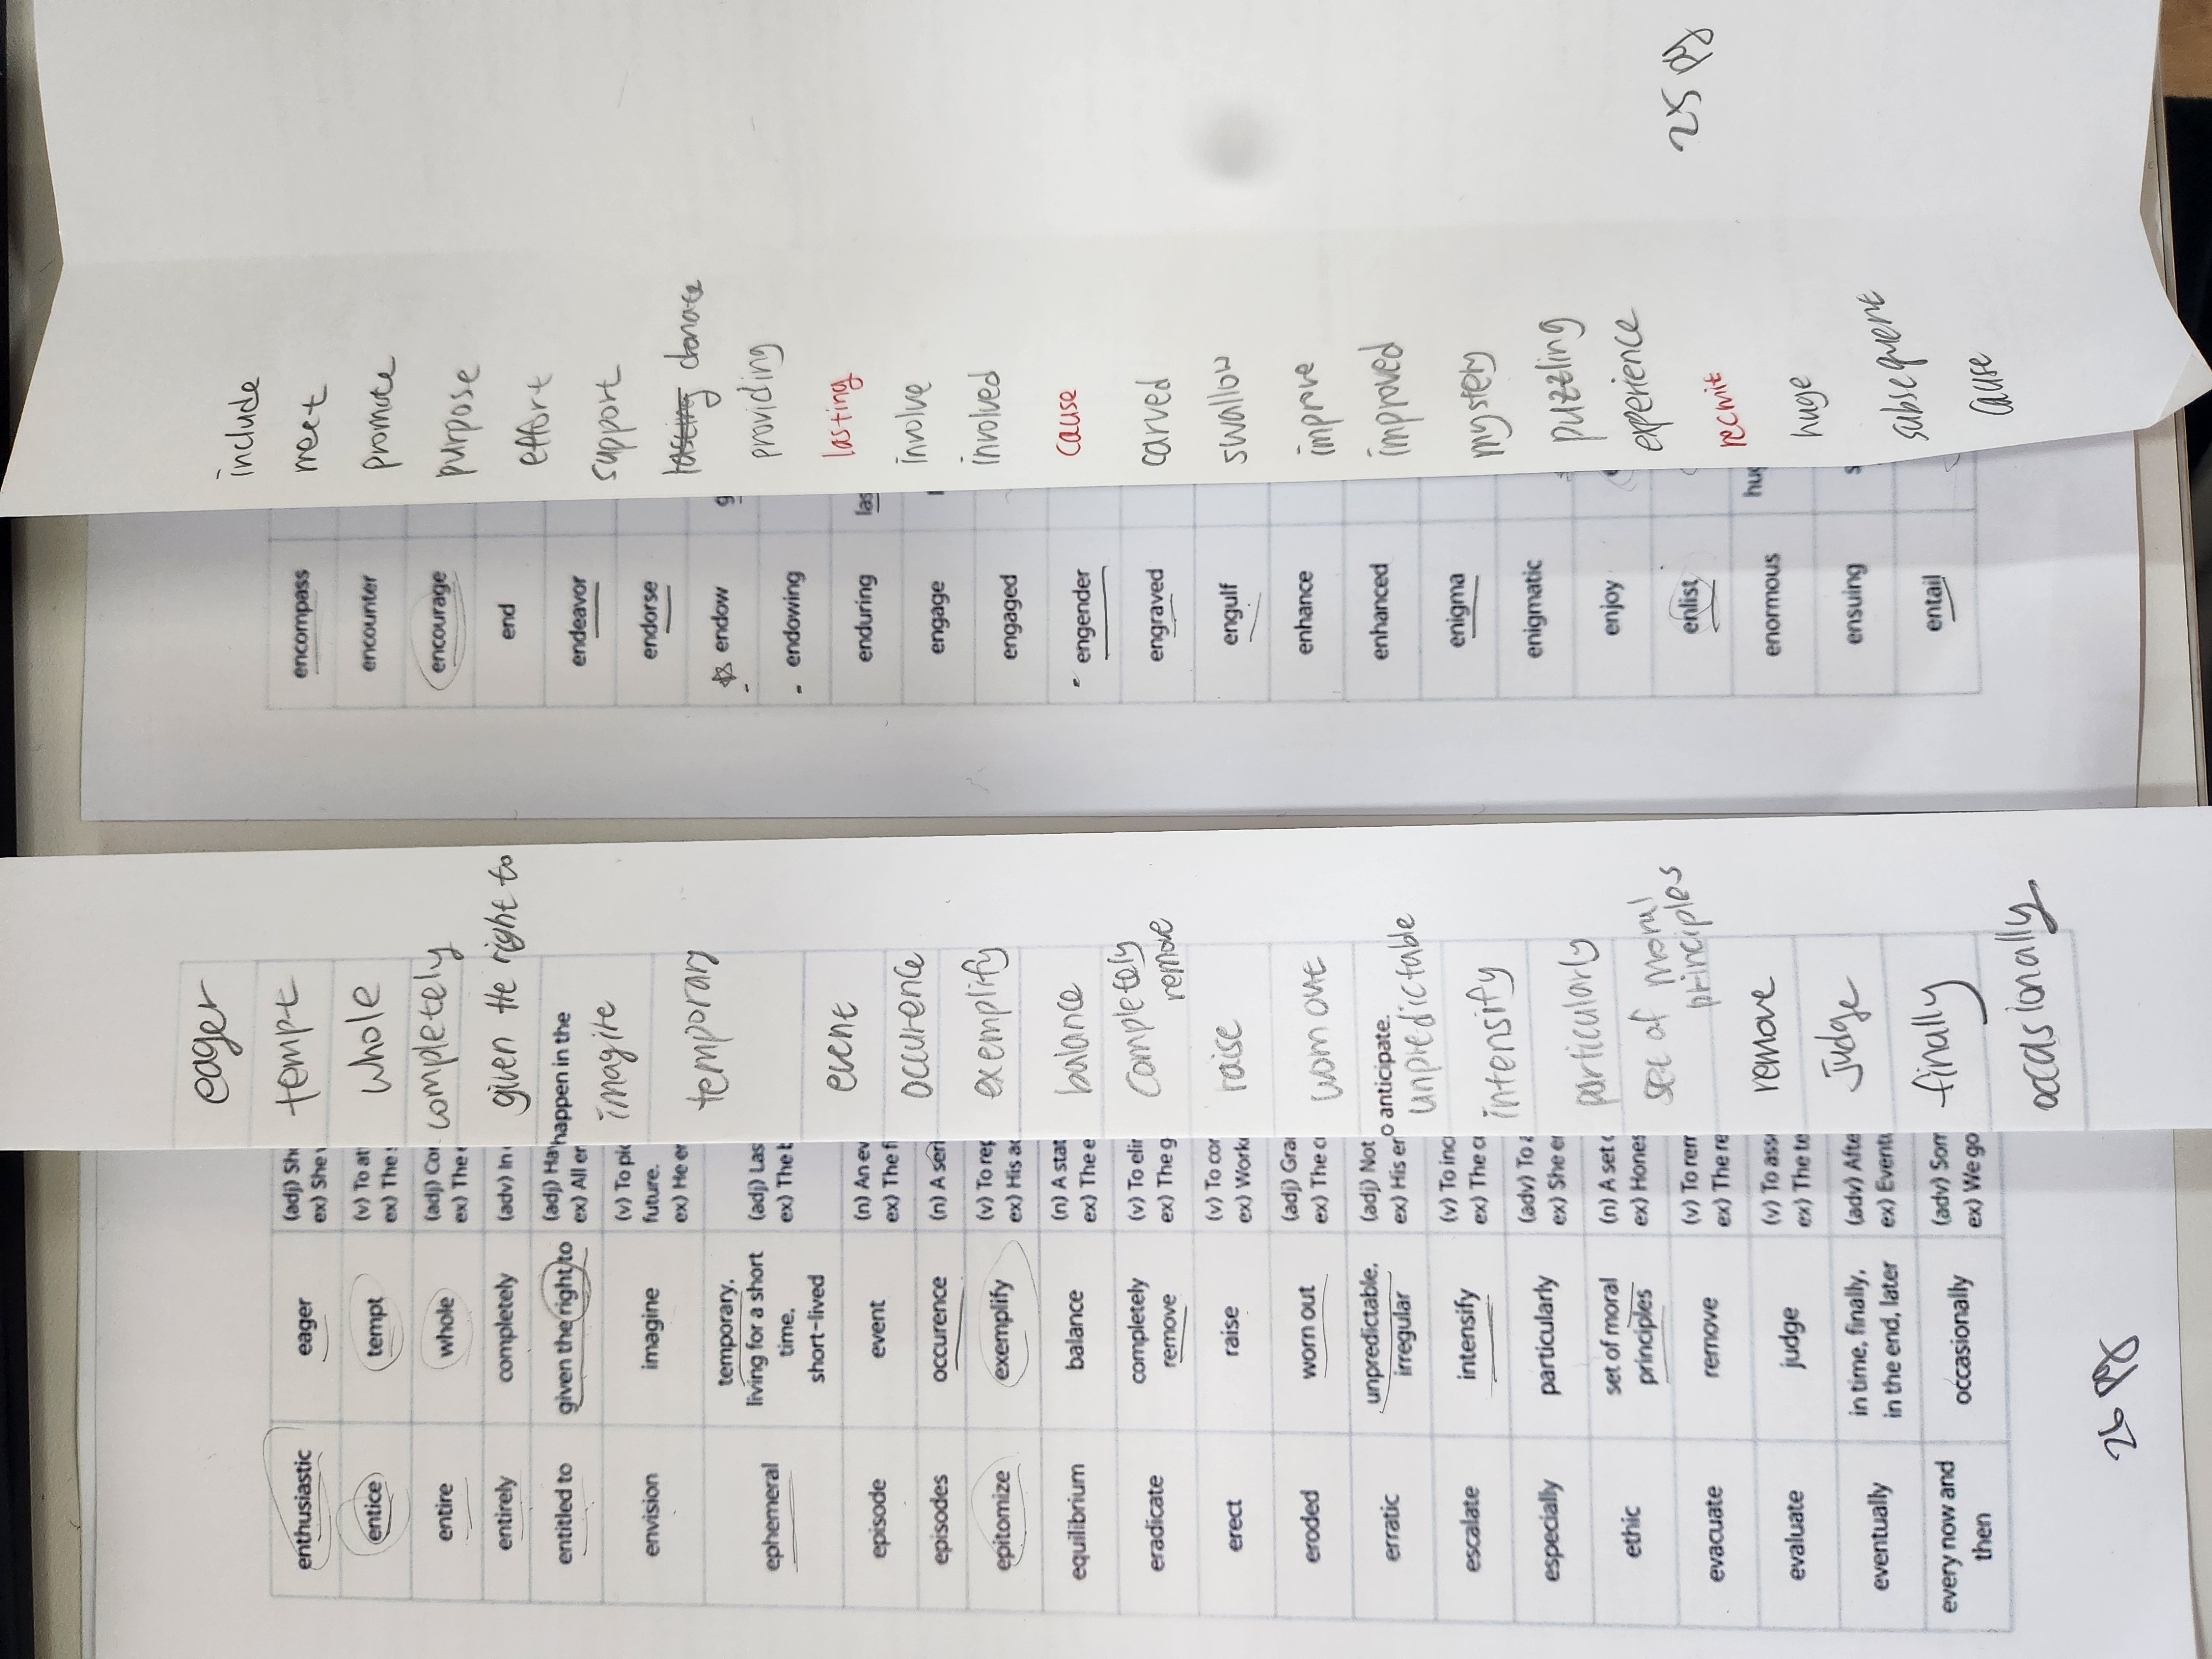 enthusiastic
eager
(adj) Sh
ex) She
eager
entice
tempt
(v) To at
ex) The
tempt
entire
whole
(adj) Co
ex) The
whole
entirely
completely
(adv) In
completely
entitled to
given the right to
(adj) Ha
ex) All er
given the right to
envision
imagine
(v) To pic
future.
ex) He er
happen in the
imagine
ephemeral
temporary.
living for a short
time.
short-lived
(adj) Las
ex) The t
temporary
episode
event
(n) An ev
ex) The f
event
episodes
occurence
(n) A seri
occurence
epitomize
exemplify
(v) To rep
ex) His a
exemplify
equilibrium
balance
(n) A stat
ex) The e
balance
eradicate
completely
remove
(v) To elir
ex) The g
completely
remove
erect
raise
(v) To cor
ex) Work
raise
eroded
worn out
(adj) Gra
ex) The c
worn out
erratic
unpredictable.
irregular
(adj) Not
ex) His er
o anticipate.
unpredictable
escalate
intensify
(v) To inc
ex) The c
intensify
especially
particularly
(adv) To a
ex) She e
particularly
ethic
set of moral
principles
(n) A set
ex) Hones
set of moral
principles
evacuate
remove
(v) To rem
ex) The re
remove
evaluate
judge
(v) To ass
ex) The te
judge
eventually
in time, finally,
in the end, later
(adv) Afte
ex) Eventu
finally
every now and
then
occasionally
(adv) Som
ex) We go
occasionally
26
encompass
include
encounter
meet
encourage
promote
end
purpose
endeavor
effort
endorse
support
endow
donate
endowing
providing
enduring
las
lasting
engage
involve
engaged
involved
engender
cause
engraved
carved
engulf
swallow
enhance
improve
enhanced
improved
enigma
mystery
enigmatic
puzzling
enjoy
experience
enlist
recruit
enormous
hug
huge
ensuing
s
subsequent
entail
cause
25